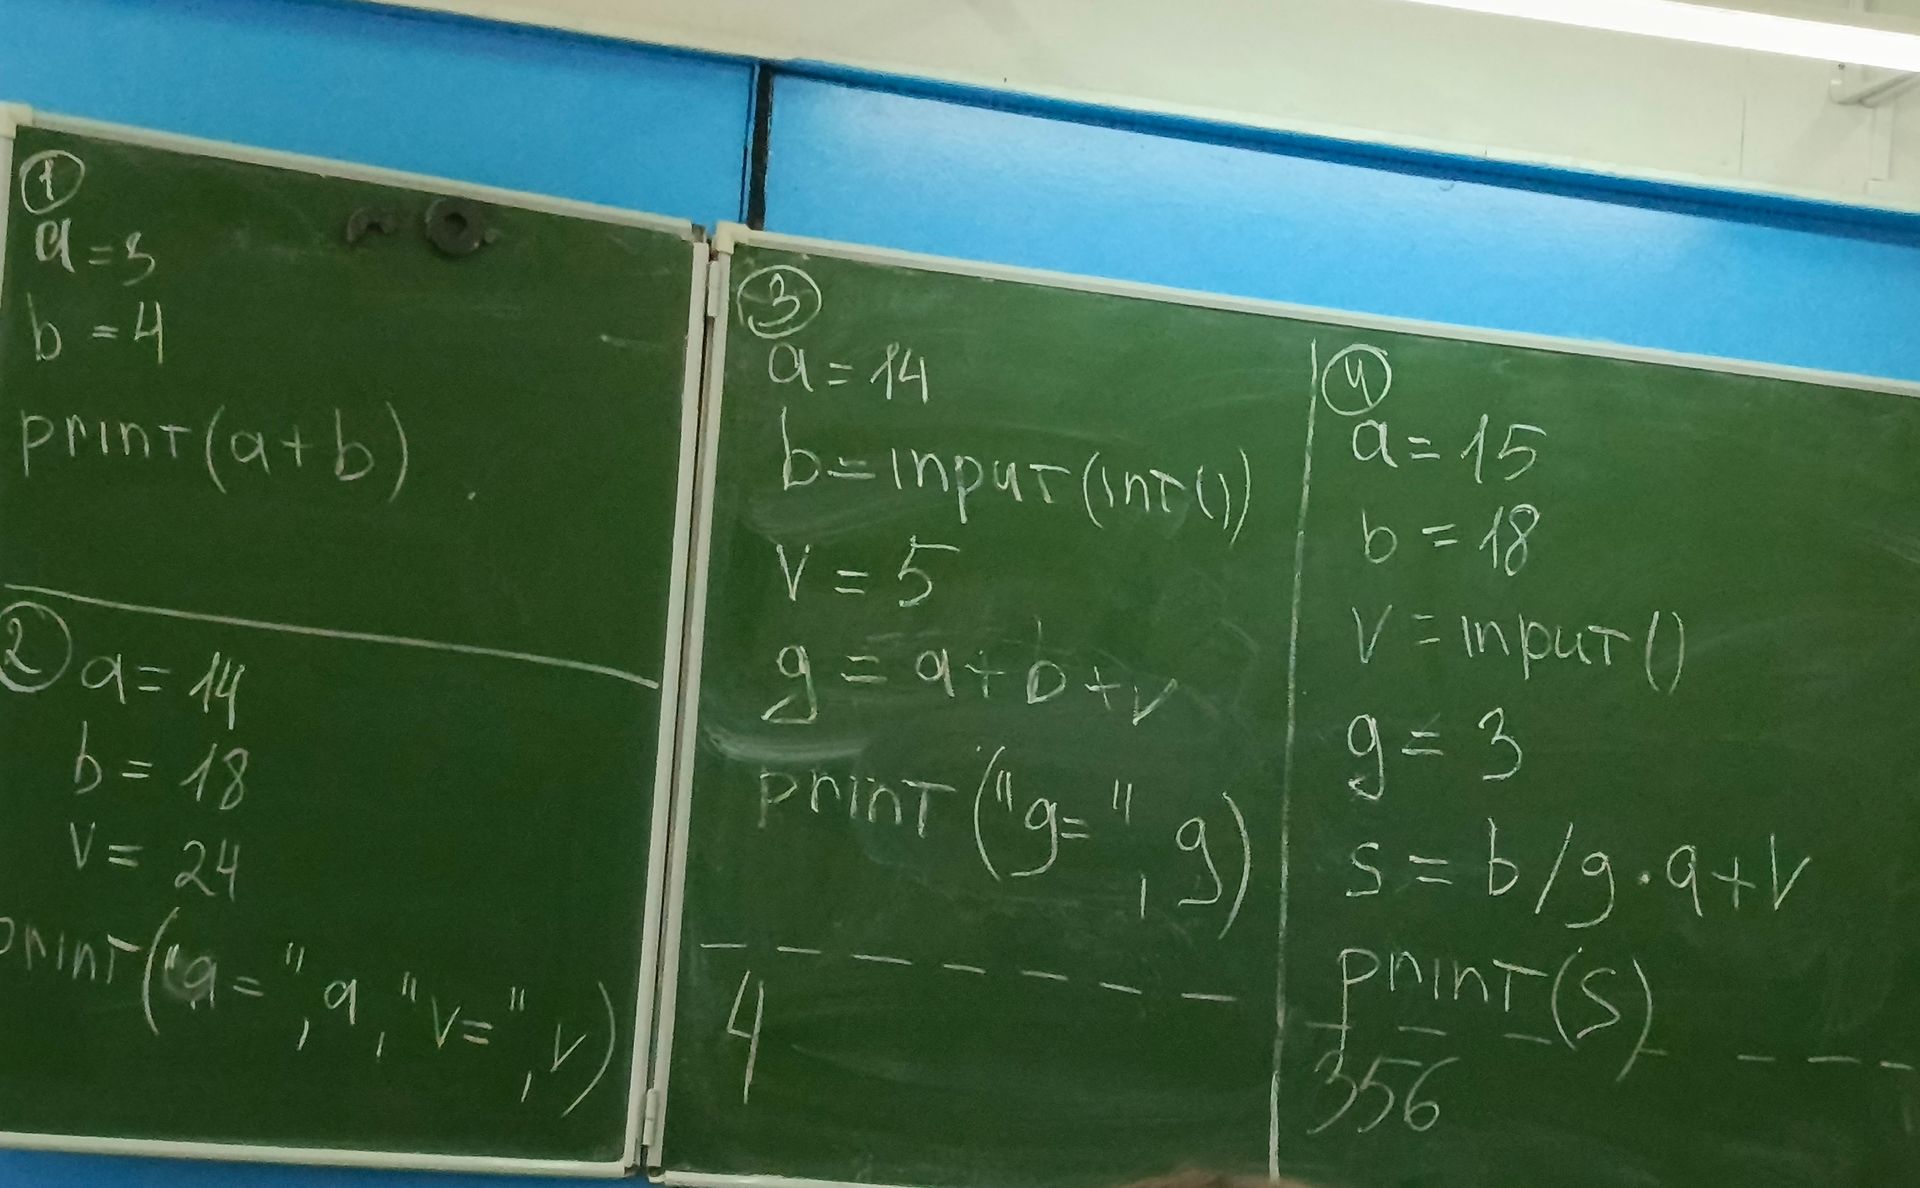 1
a=3
b=4
print(a+b)
2
a=14
b=18
v=24
print("a=",a,"v=",v)
3
a=14
b=input(int())
v=5
g=a+b+v
print("g=",g)
4
4
a=15
b=18
v=input()
g=3
s=b/g·a+v
print(s)
356